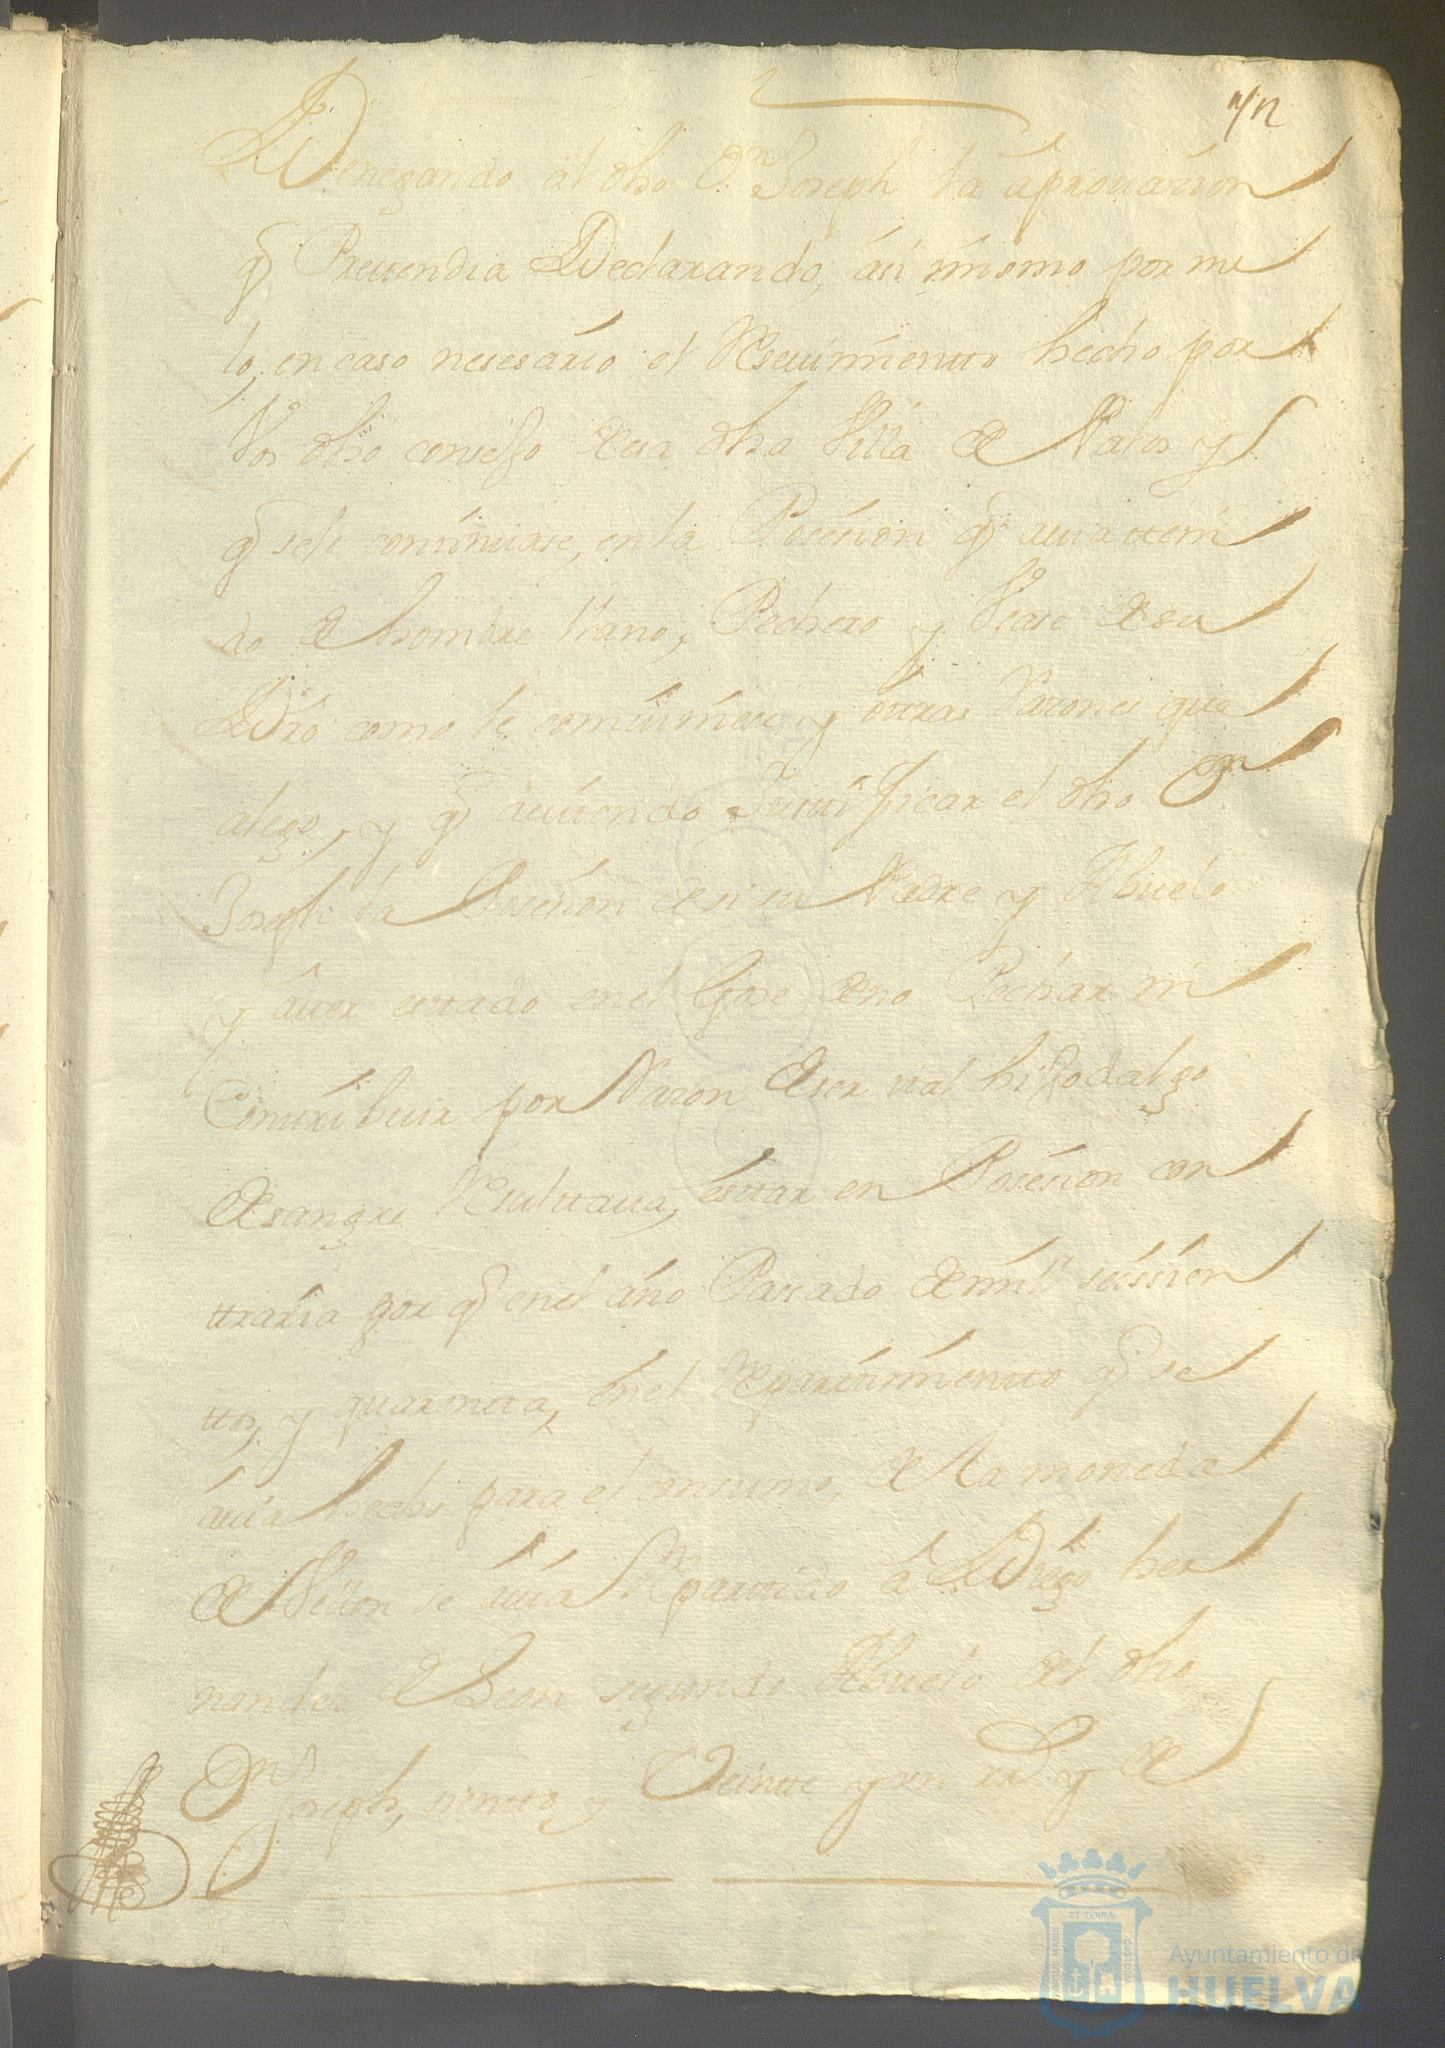 42
Denegando al dho Dn Joseph la aprovacion
q Prettendia Declarando, así mismo por nu
lo, en caso nesesario el Resevimientto hecho por
Vos dho consejo de esa dha Villa de Palos y
q sele continuase, en la Posesion q avia tteni
do de hombre llano, Pechero y Vesr de su
Dro como le combiniese y óttras Razones que
alego, y q deviendo Justtificar el dho Dn
Joseph la Posesion de si su Padre y Abuelo
y aver esttado en el Gose de no Pechar ni
Conttribuir por Razon de ser ttal hijodalgo
de sangre Resulttava, ésttar en Posesion con
ttraria por q en el áño Passado de mill seissien
ttos, y quarentta, en el Reparttimientto q se
avia hecho para el consumo, de la moneda
de Vellon se avia Reparttido á Diego her
nandes de Leon segundo Abuelo del dho
Dn Joseph, sientto y Veintte y un rs y de
Ayuntamiento de
HUELVA